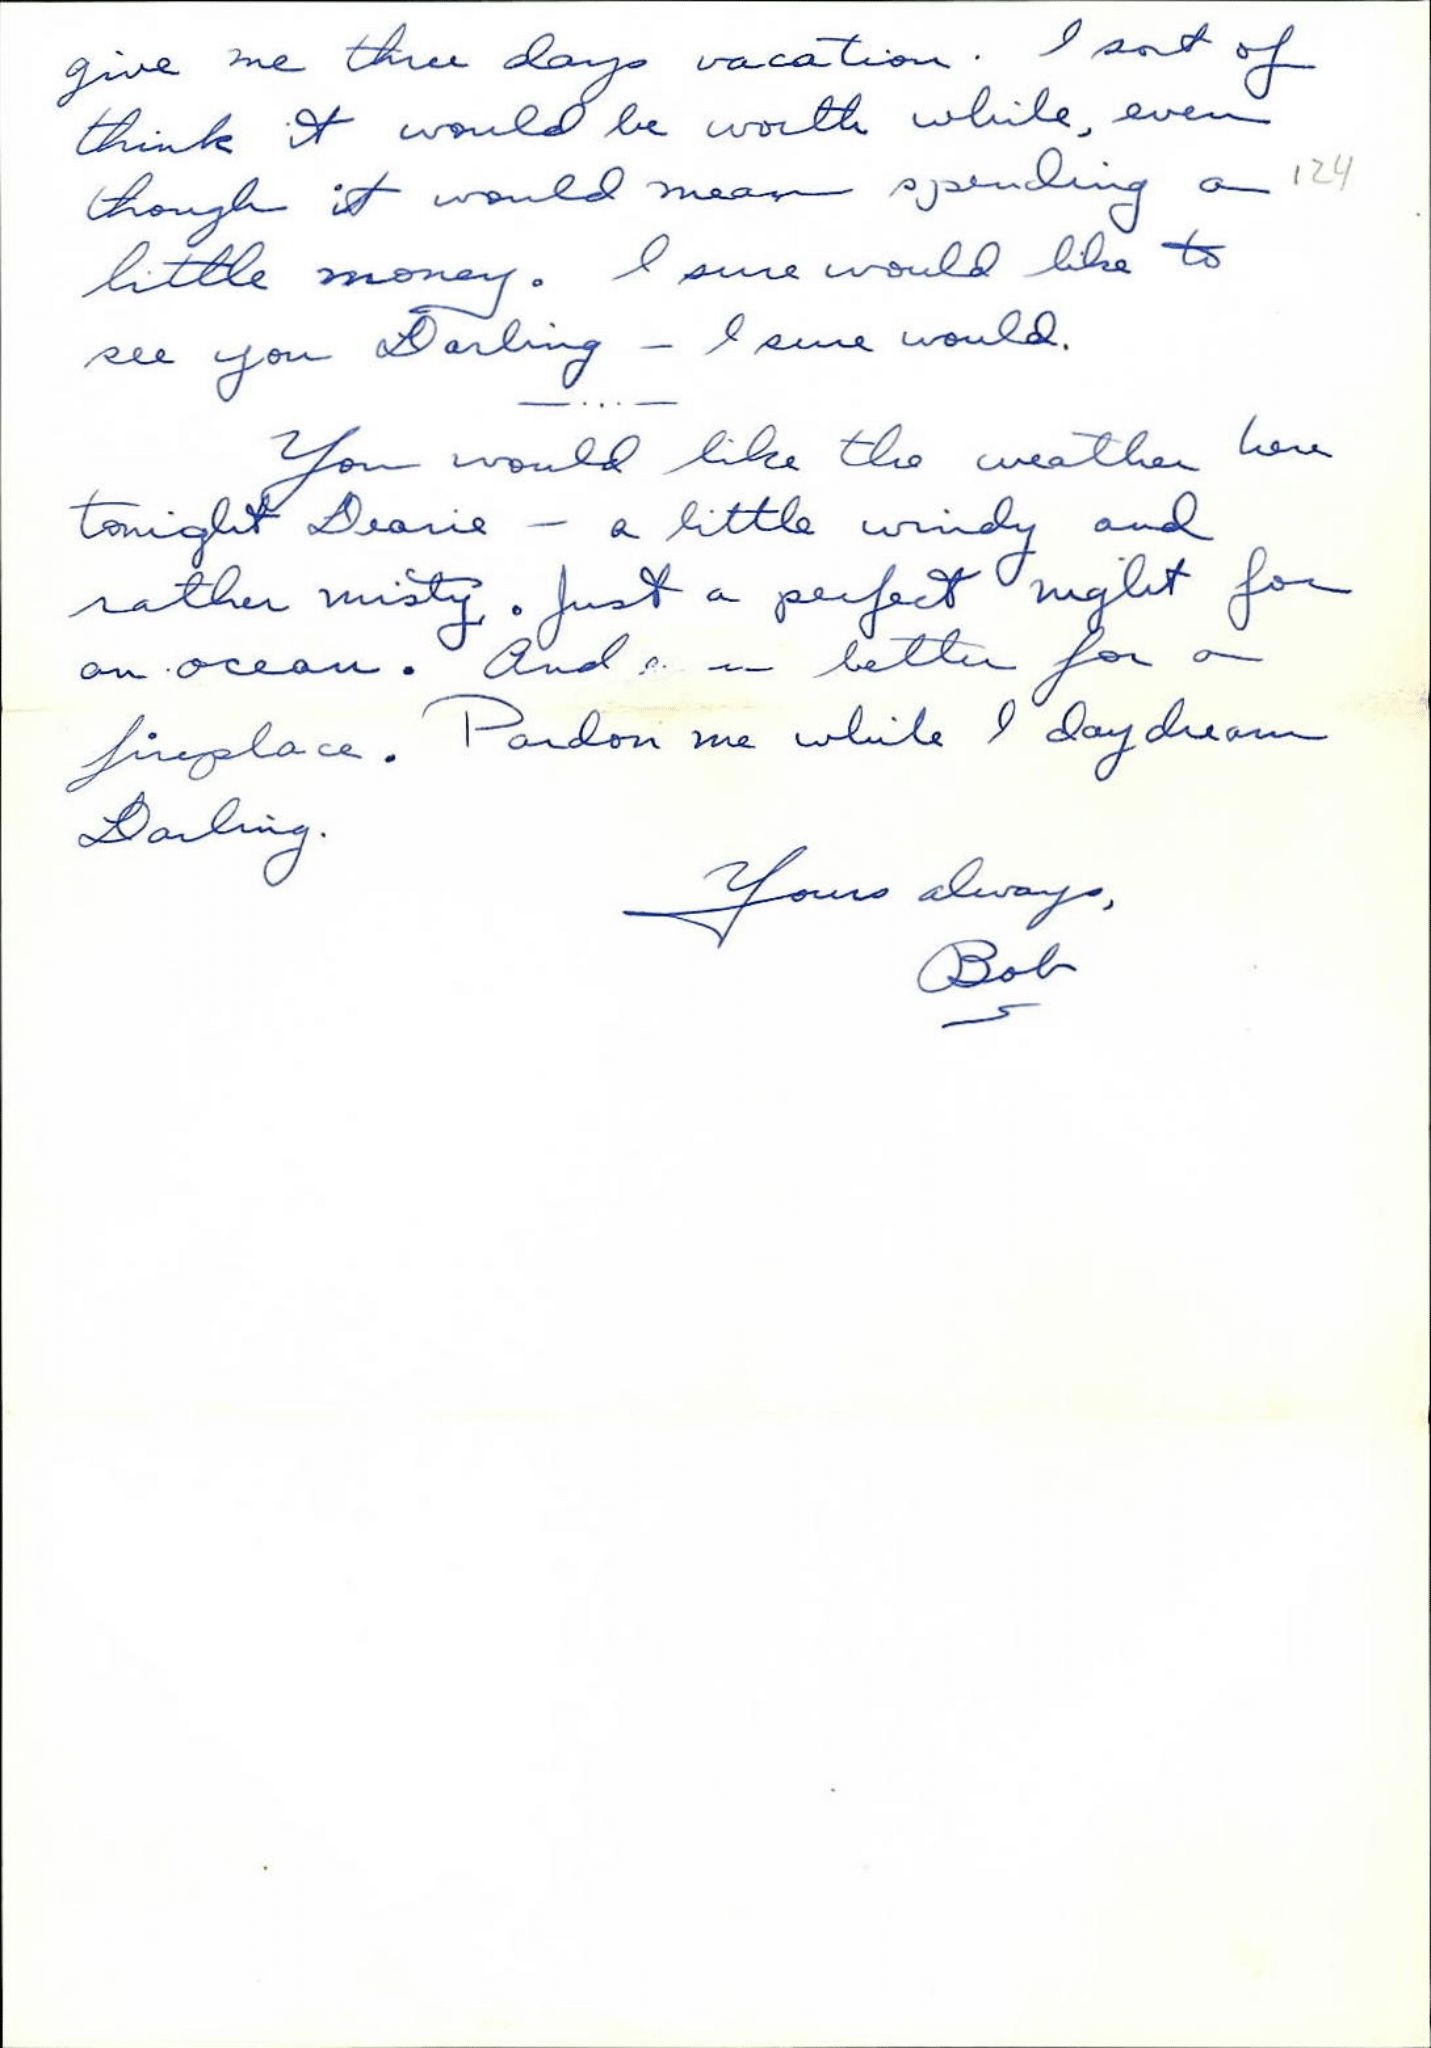 give me three days vacation. I sort of
think it would be worth while, even
though it would mean spending a 124
little money. I sure would like to
see you Darling - I sure would.
— . . . —
You would like the weather here
tonight Dearie - a little windy and
rather misty. Just a perfect night for
an ocean. And better for a
fireplace. Pardon me while I daydream
Darling.
Yours always,
Bob